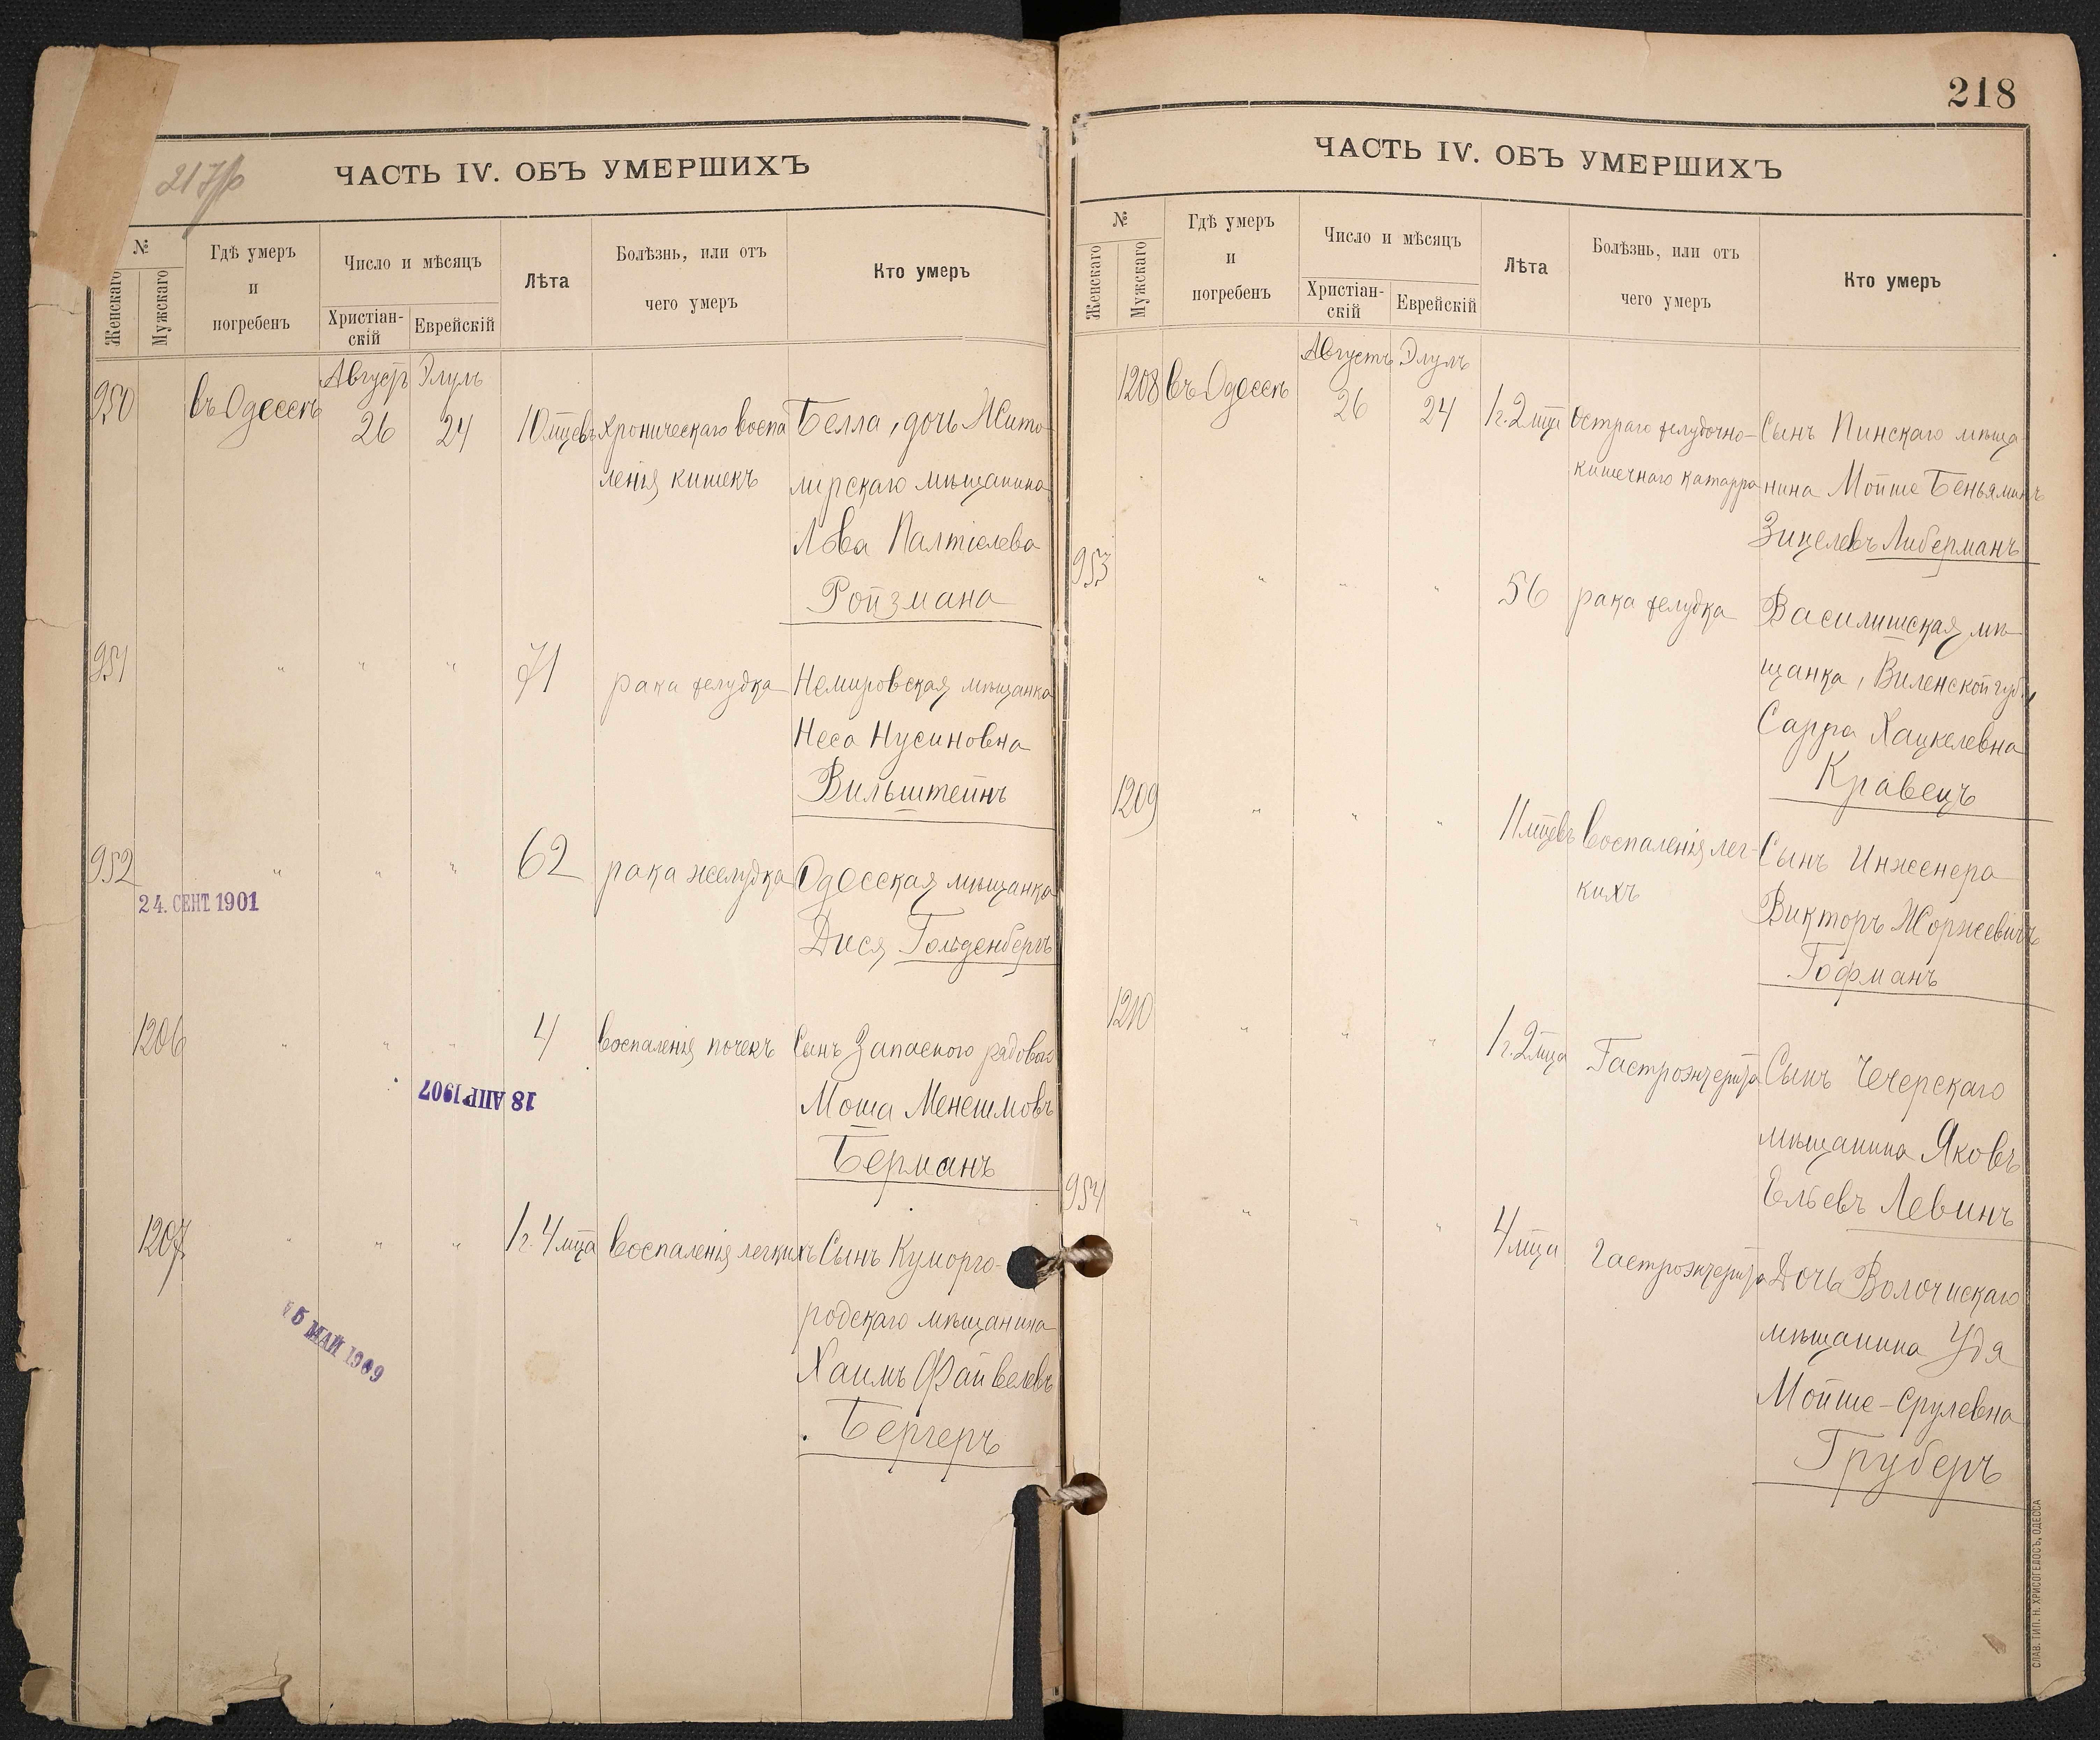 217об
ЧАСТЬ IV. ОБЪ УМЕРШИХЪ
№
Женскаго
Мужскаго
Гдѣ умеръ
и
погребенъ
Число и мѣсяцъ
Христіан-
скій
Еврейскій
Лѣта
Болѣзнь, или отъ
чего умеръ
Кто умеръ
Августъ Элулъ
950 въ Одессѣ 26 24 10 мцевъ хроническаго воспа Белла, дочь Жито-
ленія кишекъ мірскаго мѣщанина
Льва Палтіелева
Ройзмана
951 " " " 71 рака желудка Немировская мѣщанка
Неса Нусиновна
Вильштейнъ
952 " " " 62 рака желудка Одесская мѣщанка
24. СЕНТ. 1901
Дися Гольденбергъ
1206 " " " 4 воспаленія почекъ Сынъ Запаснаго рядового
18 АПР 1907
Моша Менешмовъ
Берманъ
1207 " " " 1 г. 4 мца воспаленія легкихъ Сынъ Куморго-
родскаго мѣщанина
15 МАЙ 1909
Хаимъ Файвелевъ
Бергеръ
218
ЧАСТЬ IV. ОБЪ УМЕРШИХЪ
№
Женскаго
Мужскаго
Гдѣ умеръ
и
погребенъ
Число и мѣсяцъ
Христіан-
скій
Еврейскій
Лѣта
Болѣзнь, или отъ
чего умеръ
Кто умеръ
Августъ Элулъ
1208 въ Одессѣ 26 24 1 г. 2 мца остраго желудочно- Сынъ Пинскаго мѣща
кишечнаго катарра нина Мойше Беньяминъ
Зицелевъ Либерманъ
953 " " " 56 рака желудка Василишская мѣ-
щанка, Виленской губ.,
Сарра Хацкелевна
Кравецъ
1209 " " " 11 мцевъ воспаленія лег- Сынъ Инженера
кихъ
Викторъ Жоржевичъ
Гофманъ
1210 " " " 1 г. 2 мца Гастроэнтерита Сынъ Чечерскаго
мѣщанина Яковъ
Ельевъ Левинъ
954 " " " 4 мца Гастроэнтерита Дочь Волочискаго
мѣщанина Удя
Мойше-Срулевна
Груберъ
СЛАВ. ТИП. Н. ХРИСОГЕЛОСЪ, ОДЕССА